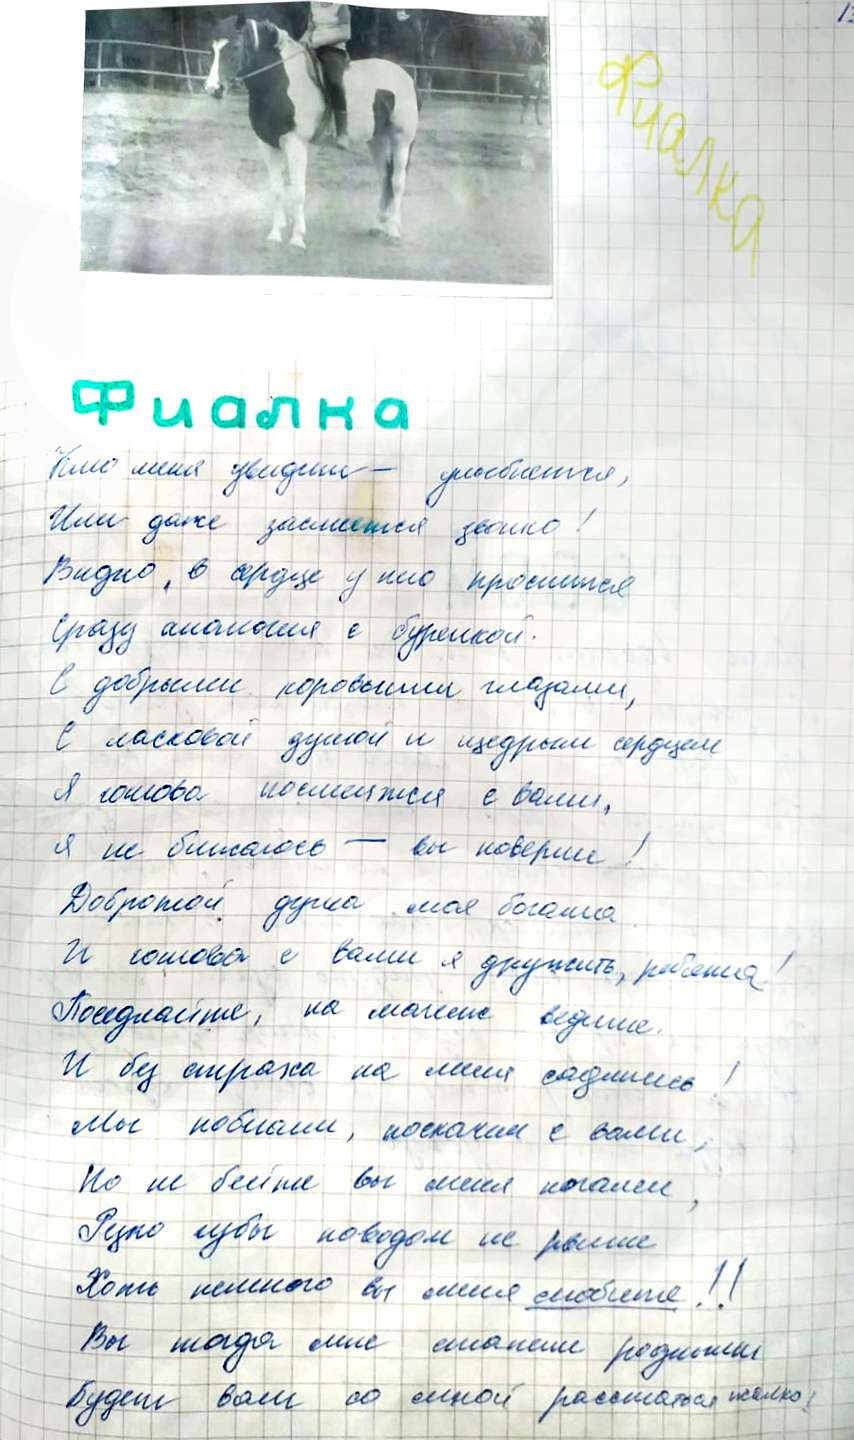 13
Фиалка
Фиалка
Кто меня увидит — улыбнется,
Или даже засмеется звонко!
Видно, в сердце у него просится
Сразу аналогия с буренкой.
С добрыми коровьими глазами,
С ласковой душой и щедрым сердцем
Я готова посмеяться с вами,
Я не обижаюсь — вы поверьте!
Добротой душа моя богата
И готова с вами я дружить, ребята!
Поседлайте, на манеж ведите.
И без страха на меня садитесь!
Мы побегаем, поскачем с вами,
Но не бейте вы меня ногами,
Резко губы поводом не рвите
Хоть немного вы меня любите!!
Вы тогда мне станете родными
Будет вам со мной расстаться жалко!